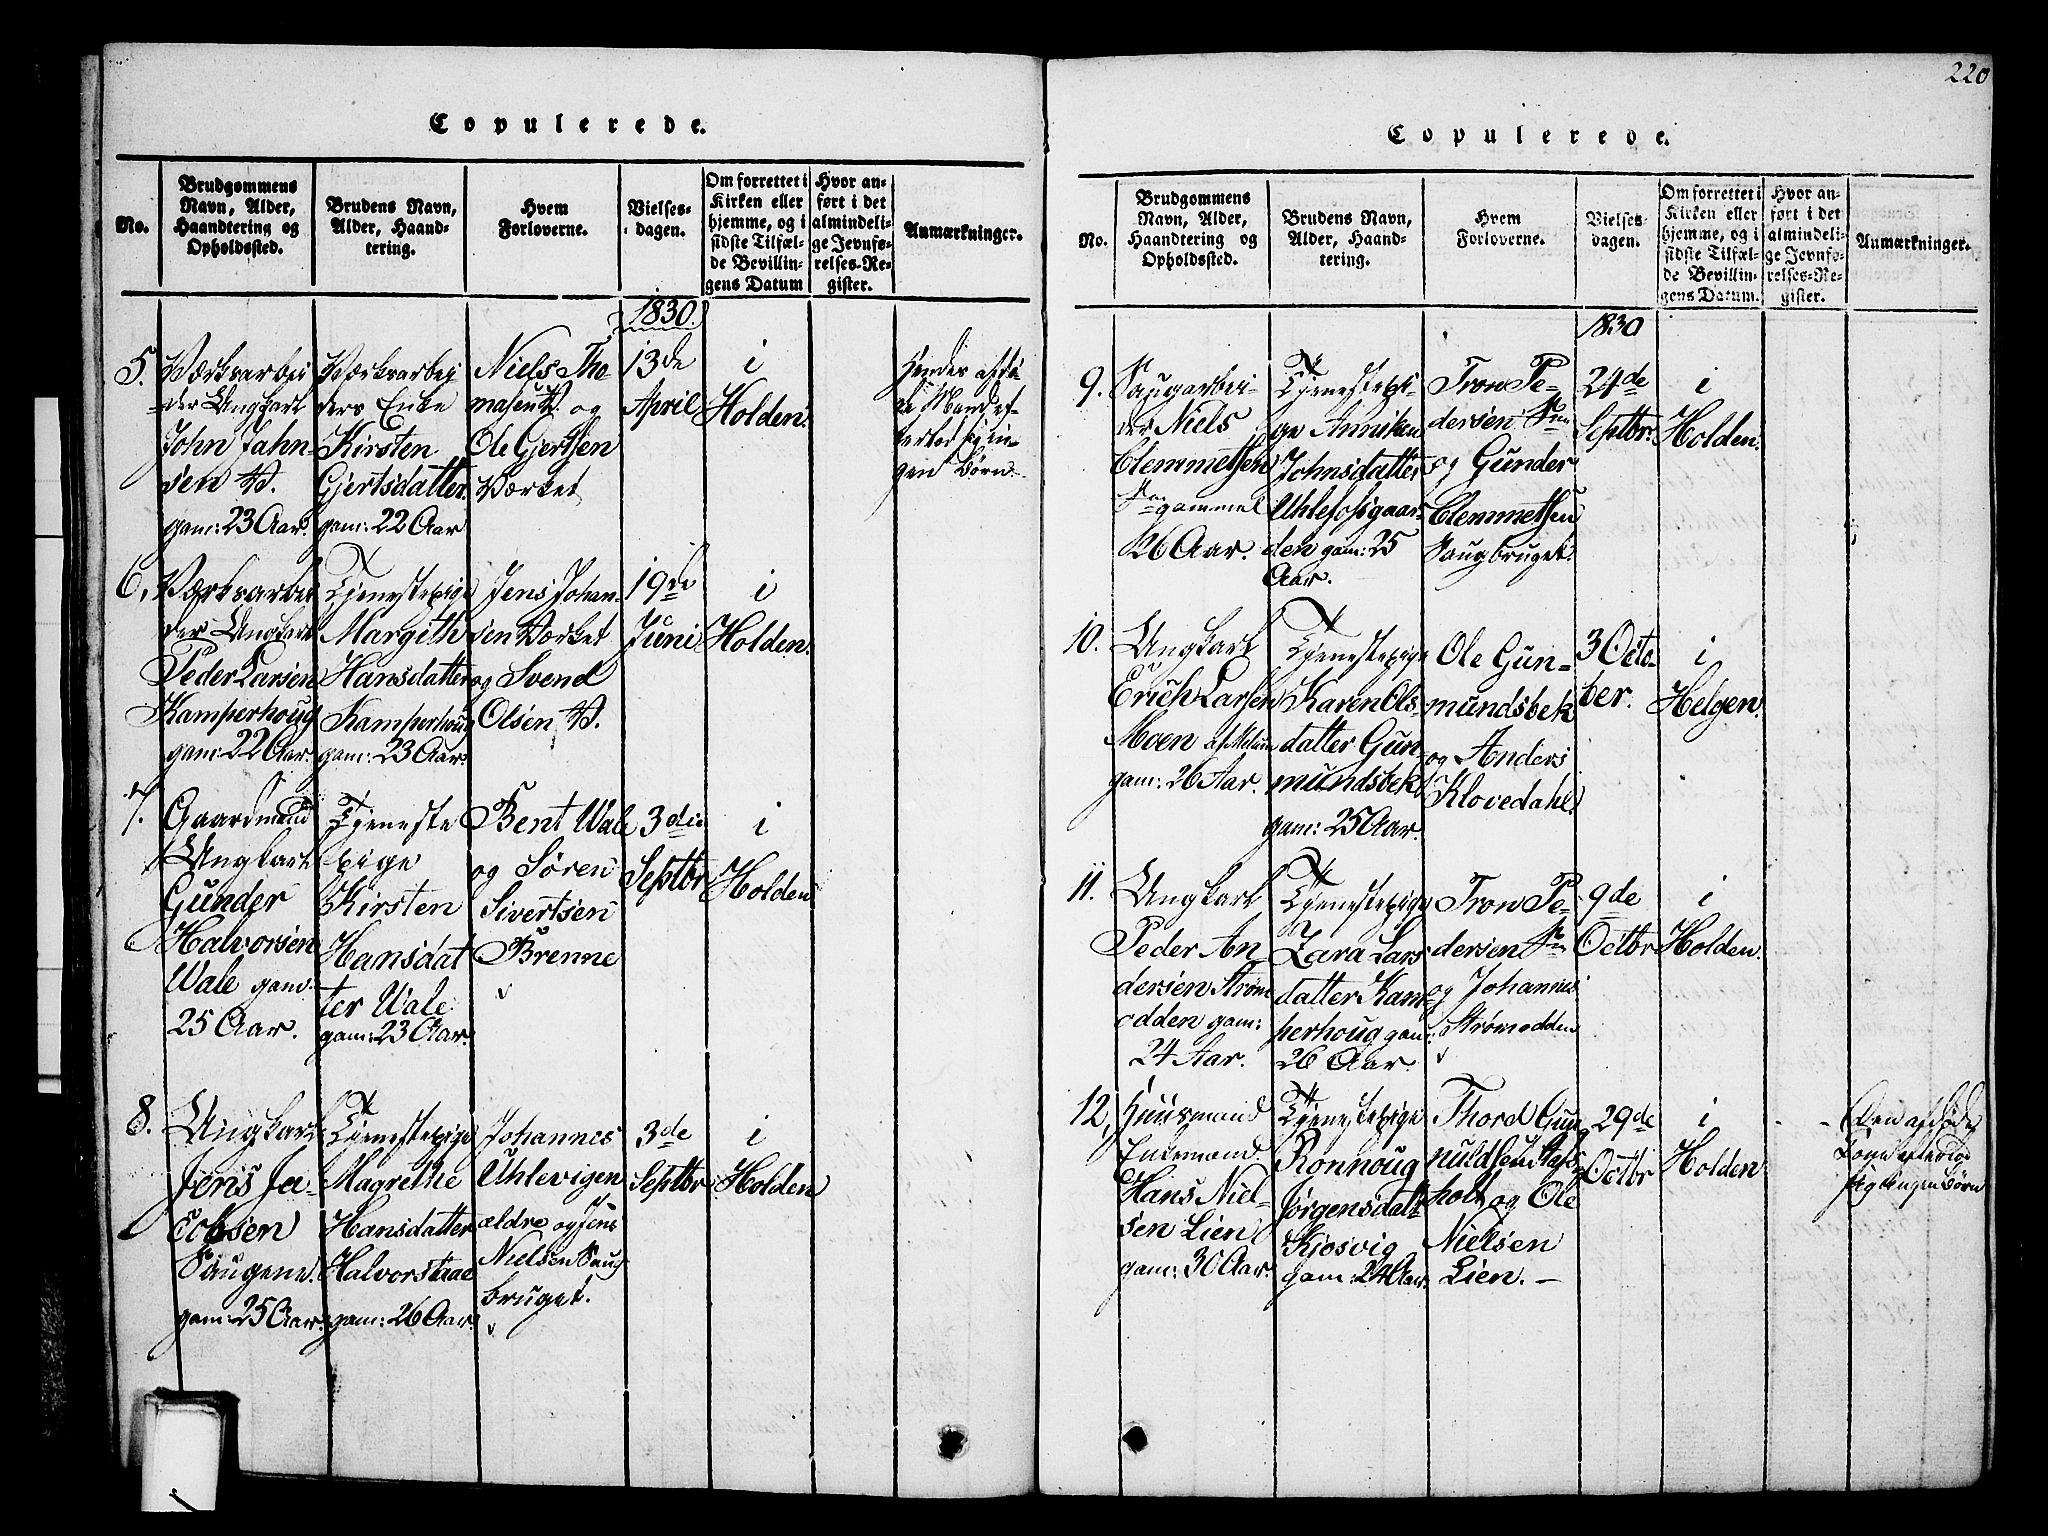 220
Copulerede.
No.
Brudgommens
Navn, Alder,
Haandtering og
Opholdssted.
Brudens Navn,
Alder, Haand-
tering.
Hvem
Forloverne.
Vielses-
dagen.
Om forrettet i
Kirken eller
hjemme, og i
sidste Tilfæl-
de Bevillin-
gens Datum
Hvor an-
ført i det
almindeli-
ge Jevnfø-
relses-Re-
gister.
Anmærkninger.
1830.
5.
Værksarbei
der Ungkarl
John Jahn-
sen V.
gam: 23 Aar.
Værksarbei
ders Enke
Kirsten
Gjertsdatter
gam: 22 Aar
Niels Tho-
masen V. og
Ole Gjertsen
Værket
13de
April
i
Holden.
Hendes afdø
de Mand ef-
terlod sig in-
gen Børn
6.
Værksarbei
der Ungkarl
Peder Larsen
Kamperhoug
gam: 22 Aar.
Tjenestepige
Margith
Hansdatter
Kamperhoug
gam: 23 Aar.
Jens Johan-
sen Værket
og Svend
Olsen V.
19de
Juni
i
Holden.
7.
Gaardmand
Ungkarl
Gunder
Halvorsen
Wale gam:
25 Aar.
Tjeneste
pige
Kirsten
Hansdat
ter Wale
gam: 23 Aar.
Bent Wale
og Søren
Sivertsen
Brenne
3die
Septbr
i
Holden
8.
Ungkarl
Jens Ja-
cobsen
Saugene.
gam: 25 Aar.
Tjenestepige
Magrethe
Hansdatter
Halvorstaae
gam: 26 Aar.
Johannes
Uhlevigen
ældre og Jens
Nielsen Saug
bruget.
3de
Septbr
i
Holden
Copulerede.
No.
Brudgommens
Navn, Alder,
Haandtering og
Opholdssted.
Brudens Navn,
Alder, Haand-
tering.
Hvem
Forloverne.
Vielses-
dagen.
Om forrettet i
Kirken eller
hjemme, og i
sidste Tilfæl-
de Bevillin-
gens Datum.
Hvor an-
ført i det
almindeli-
ge Jevnfø-
relses-Re-
gister.
Anmærkninger.
1830
9.
Saugarbei-
der Niels
Clemmetsen
gammel
26 Aar.
Tjenestepi-
ge Anniken
Johnsdatter
Uhlefossgaar-
den gam: 25
Aar.
Tron Pe-
dersen
og Gunder
Clemmetsen
Saugbruget.
24de
Septbr.
i
Holden.
10.
Ungkarl
Erich Larsen
Moen af Melum
gam: 26 Aar.
Tjenestepige
Karen Ols-
datter Gun-
mundsbek
gam: 25 Aar.
Ole Gun-
mundsbek
og Anders
Klovedahl
3 Octo-
ber.
i
Helgen.
11.
Ungkarl
Peder An-
dersen Strøm
odden gam:
24 Aar.
Tjenestepige
Zara Lars
datter Kam-
perhoug gam:
26 Aar.
Tron Pe-
dersen
og Johannes
Strømodden
9de
Octbr
i
Holden.
12,
Huusmand
Enkemand
Hans Niel-
sen Lien
gam: 30 Aar.
Tjenestepige
Ronnoug
Jørgensdatt
Kjosvig
gam: 24 Aar.
Thord Gun
nuldsen
holt og Ole
Nielsen
Lien. –
29de
Octbr
i
Holden
Den afdøde
Kone efterlod
sig ingen Børn